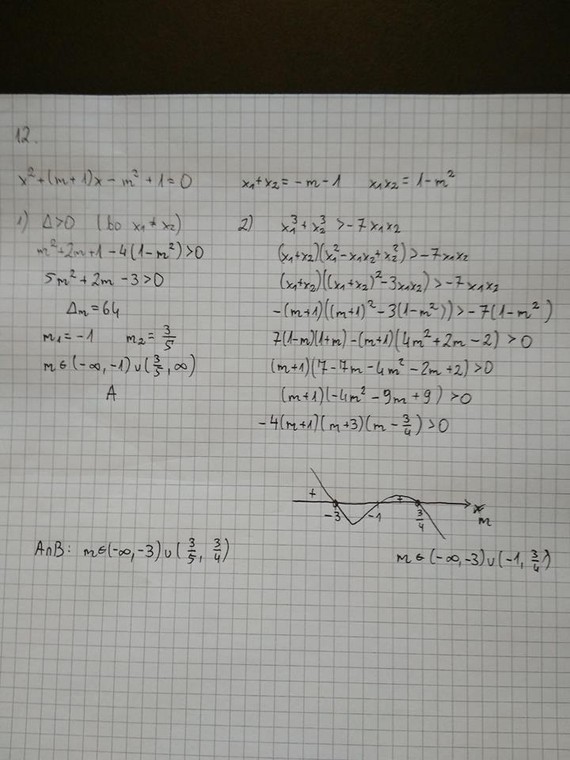 12.
x² + (m+1)x - m² + 1 = 0
x₁+x₂ = -m-1 x₁x₂ = 1-m²
1) Δ>0 (bo x₁≠x₂)
m²+2m+1-4(1-m²)>0
5m²+2m-3>0
Δm = 64
m₁=-1 m₂=3/5
m∈(-∞,-1)∪(3/5,∞)
A
2) x₁³+x₂³>-7x₁x₂
(x₁+x₂)(x₁²-x₁x₂+x₂²)>-7x₁x₂
(x₁+x₂)((x₁+x₂)²-3x₁x₂)>-7x₁x₂
-(m+1)((m+1)²-3(1-m²))>-7(1-m²)
7(1-m)(1+m)-(m+1)(4m²+2m-2)>0
(m+1)(7-7m-4m²-2m+2)>0
(m+1)(-4m²-9m+9)>0
-4(m+1)(m+3)(m-3/4)>0
+ +
-3 -1 3/4 m
m∈(-∞,-3)∪(-1,3/4)
A∩B: m∈(-∞,-3)∪(3/5, 3/4)